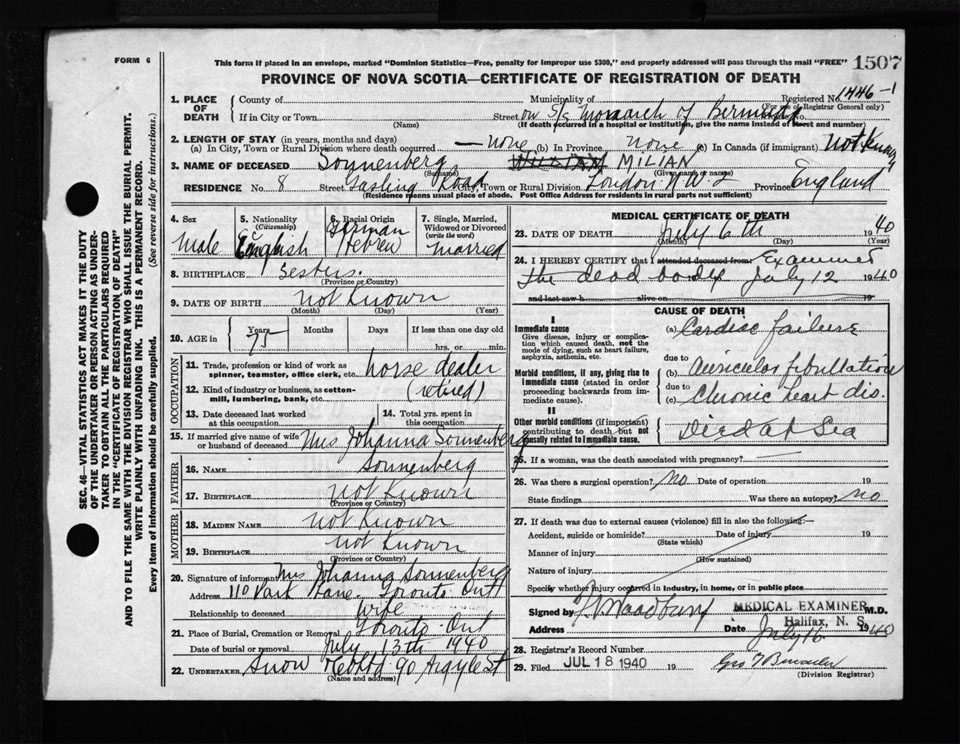 FORM 6
This form if placed in an envelope, marked "Dominion Statistics—Free, penalty for improper use $300," and properly addressed will pass through the mail "FREE"
1507
PROVINCE OF NOVA SCOTIA—CERTIFICATE OF REGISTRATION OF DEATH
Registered No. 1446-1
(For use of Registrar General only)
1. PLACE OF DEATH
County of
Municipality of
If in City or Town
(Name)
Street on S/S Monarch of Bermuda No.
(If death occurred in a hospital or institution, give the name instead of street and number)
2. LENGTH OF STAY (in years, months and days)
(a) In City, Town or Rural Division where death occurred — none (b) In Province none (c) In Canada (if immigrant) Not Known
3. NAME OF DECEASED Sonnenberg MILIAN
(Surname) (Given name or names)
RESIDENCE No. 8 Street Road City, Town or Rural Division London N.W.2 Province England
(Residence means usual place of abode. Post Office Address for residents in rural parts not sufficient)
4. Sex
male
5. Nationality
(Citizenship)
English
6. Racial Origin
German
Hebrew
7. Single, Married, Widowed or Divorced
(write the word)
married
8. BIRTHPLACE
(Province or Country)
9. DATE OF BIRTH not Known
(Month) (Day) (Year)
10. AGE in
Years Months Days If less than one day old
75
hrs. or min.
OCCUPATION
11. Trade, profession or kind of work as spinner, teamster, office clerk, etc. horse dealer
12. Kind of industry or business, as cotton-mill, lumbering, bank, etc. (retired)
13. Date deceased last worked at this occupation
14. Total yrs. spent in this occupation
15. If married give name of wife or husband of deceased Mrs Johanna Sonnenberg
FATHER
16. NAME Sonnenberg
17. BIRTHPLACE not Known
(Province or Country)
MOTHER
18. MAIDEN NAME not Known
19. BIRTHPLACE not Known
(Province or Country)
20. Signature of informant Mrs Johanna Sonnenberg
Address 110 Park Lane Toronto Ont
Relationship to deceased Wife
21. Place of Burial, Cremation or Removal Toronto Ont
Date of burial or removal July 13th 1940
22. UNDERTAKER Snow & Co Ltd 90 Argyle St
(Name and address)
MEDICAL CERTIFICATE OF DEATH
23. DATE OF DEATH July 6th 1940
(Month) (Day) (Year)
24. I HEREBY CERTIFY that I attended deceased from Examined
the dead body July 12 1940
and last saw h alive on 19
CAUSE OF DEATH
I
Immediate cause
Give disease, injury or complication which caused death, not the mode of dying, such as heart failure, asphyxia, asthenia, etc.
(a) Cardiac failure
due to
Morbid conditions, if any, giving rise to immediate cause (stated in order proceeding backwards from immediate cause).
(b) Auricular fibrillation
due to
(c) Chronic heart dis.
II
Other morbid conditions (if important) contributing to death, but not causally related to immediate cause.
Died at Sea
25. If a woman, was the death associated with pregnancy? —
26. Was there a surgical operation? no Date of operation 19
State findings Was there an autopsy? no
27. If death was due to external causes (violence) fill in also the following:—
Accident, suicide or homicide? Date of injury 19
(State which)
Manner of injury
(How sustained)
Nature of injury
Specify whether injury occurred in Industry, in home, or in public place
Signed by MEDICAL EXAMINER M.D.
Halifax, N. S.
Address Date July 16 1940
28. Registrar's Record Number
29. Filed JUL 18 1940 19
(Division Registrar)
SEC. 46—VITAL STATISTICS ACT MAKES IT THE DUTY
OF THE UNDERTAKER OR PERSON ACTING AS UNDER-
TAKER TO OBTAIN ALL THE PARTICULARS REQUIRED
IN THE "CERTIFICATE OF REGISTRATION OF DEATH"
AND TO FILE THE SAME WITH THE DIVISION REGISTRAR WHO SHALL ISSUE THE BURIAL PERMIT.
WRITE PLAINLY WITH UNFADING INK. THIS IS A PERMANENT RECORD.
Every item of information should be carefully supplied. (See reverse side for instructions.)